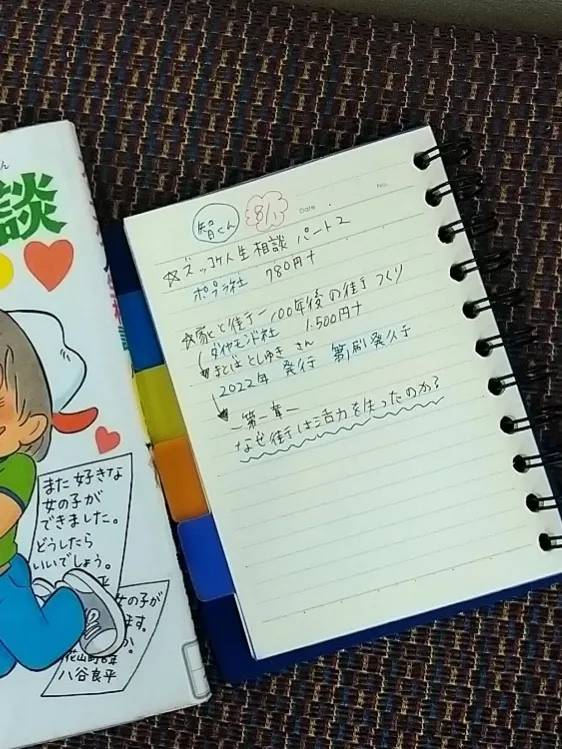 ん
談
また好きな
女の子が
できました。
どうしたら
いいでしょう。
平
女の子が
ます。
か。
花山町6年
八谷良平
智くん 8/1 Date No.
☆ズッコケ人生相談 パート2
ポプラ社 780円+
☆家と街を一100年後の街づくり
ダイヤモンド社 1.500円+
♥まどばとしゆき さん
2022年 発行 第1刷発行
ー第一章ー
なぜ街は活力を失ったのか?